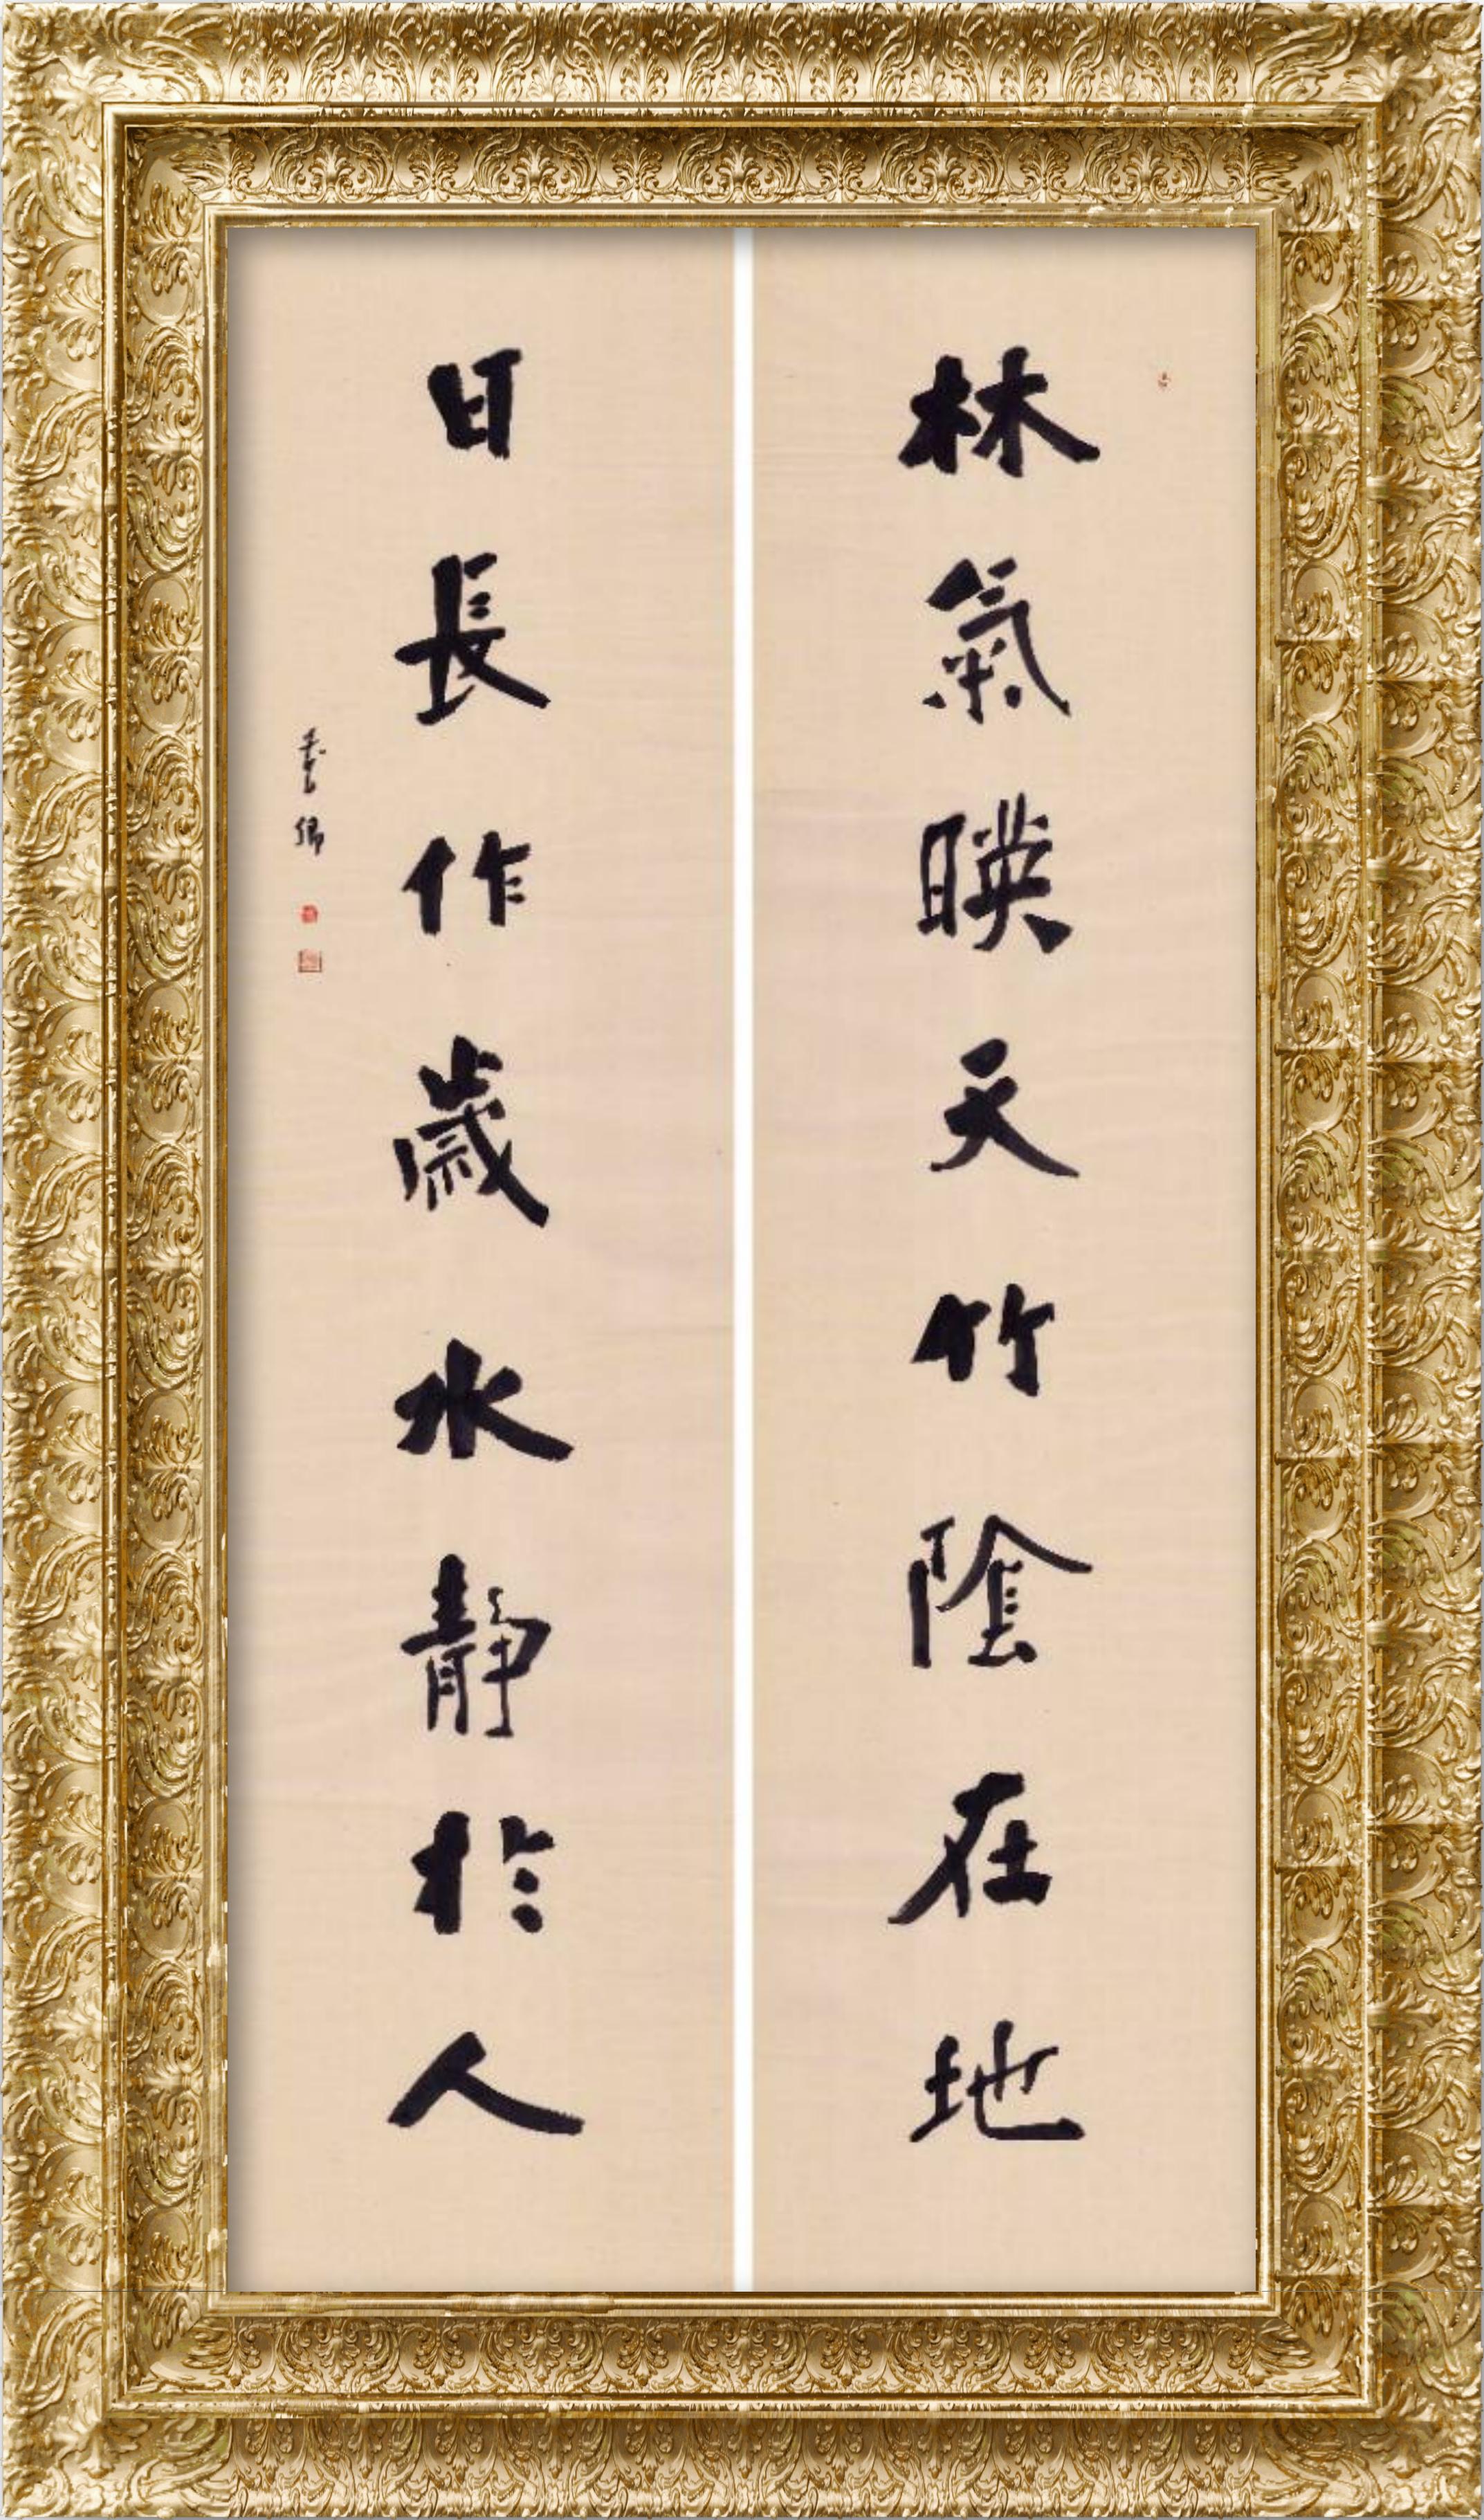 林氣暎天竹陰在地
日長作歲水靜於人